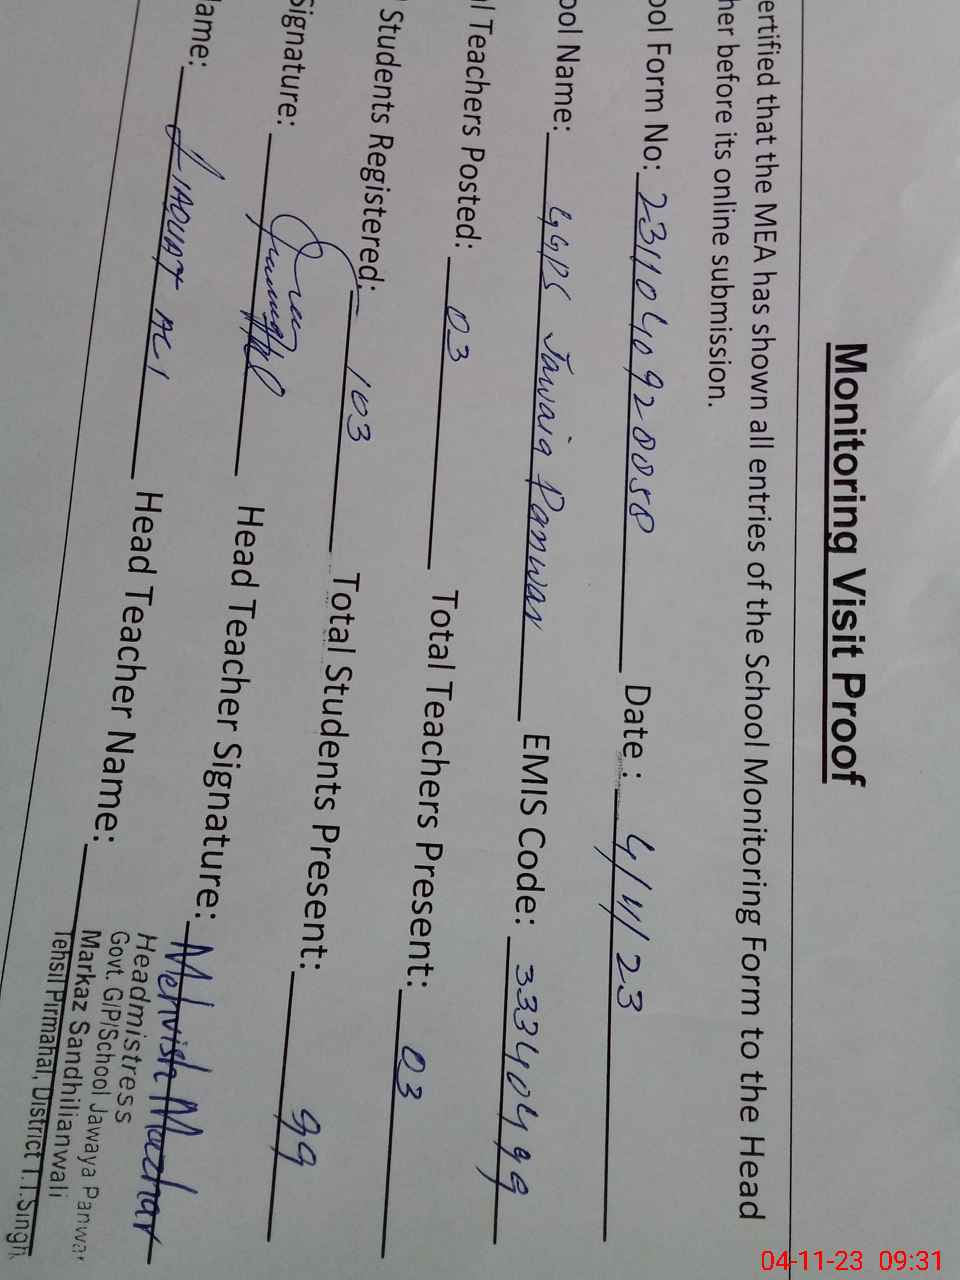 Monitoring Visit Proof
ertified that the MEA has shown all entries of the School Monitoring Form to the Head
her before its online submission.
ool Form No: 2311040920058 Date : 4/11/23
ool Name: GGPS Jawaia Panwar EMIS Code: 33340499
l Teachers Posted: 03 Total Teachers Present: 03
Students Registered: 103 Total Students Present: 99
Signature: Head Teacher Signature: Mehvish Mazhar
ame: LIAQUAT ACI Head Teacher Name:
Headmistress
Govt. G/P/School Jawaya Panwar
Markaz Sandhilianwali
Tehsil Pirmahal, District T.T.Singh
04-11-23 09:31